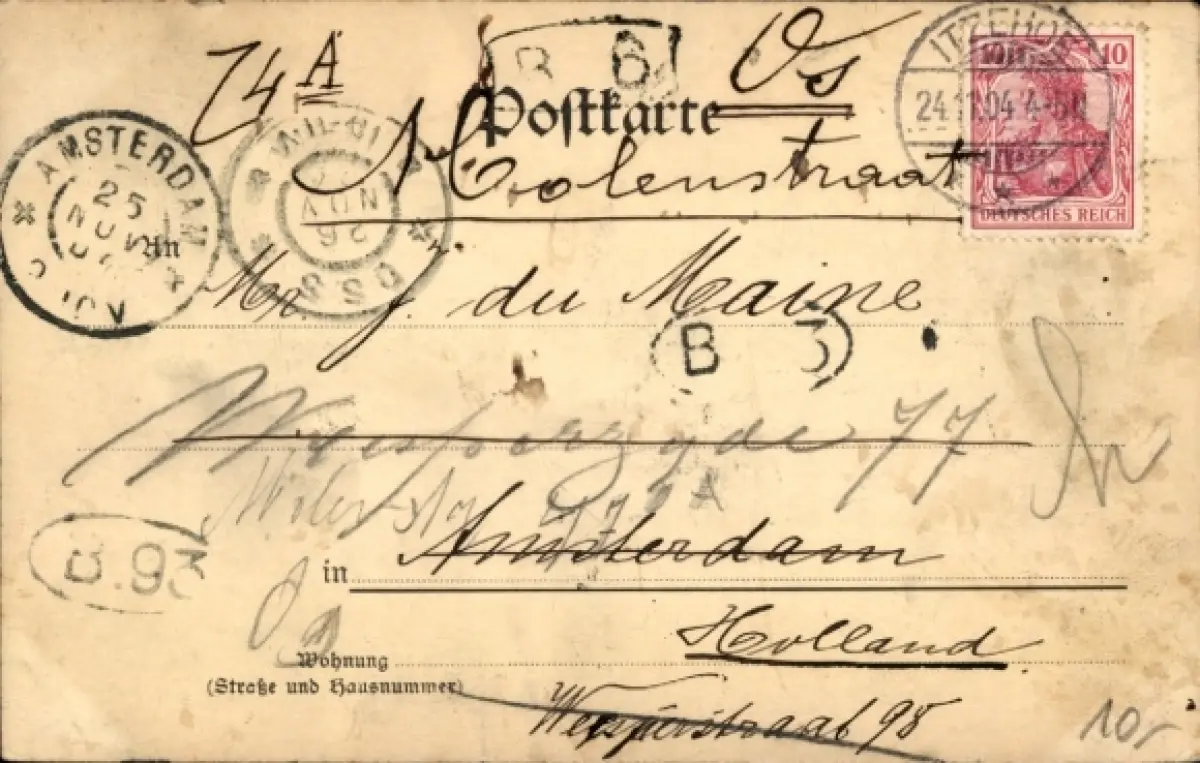 74 A
B 6
Os
ITZEHOE
24.11.04 4-5N
10 10
DEUTSCHES REICH
Postkarte
Molenstraat
AMSTERDAM
25
NOV
OSS
NOV
An
Mr. J. du Maine
B 3
Weesperzyde 77
B.93
in Amsterdam
Holland
Wohnung
(Straße und Hausnummer)
Weesperstraat 98
10,-